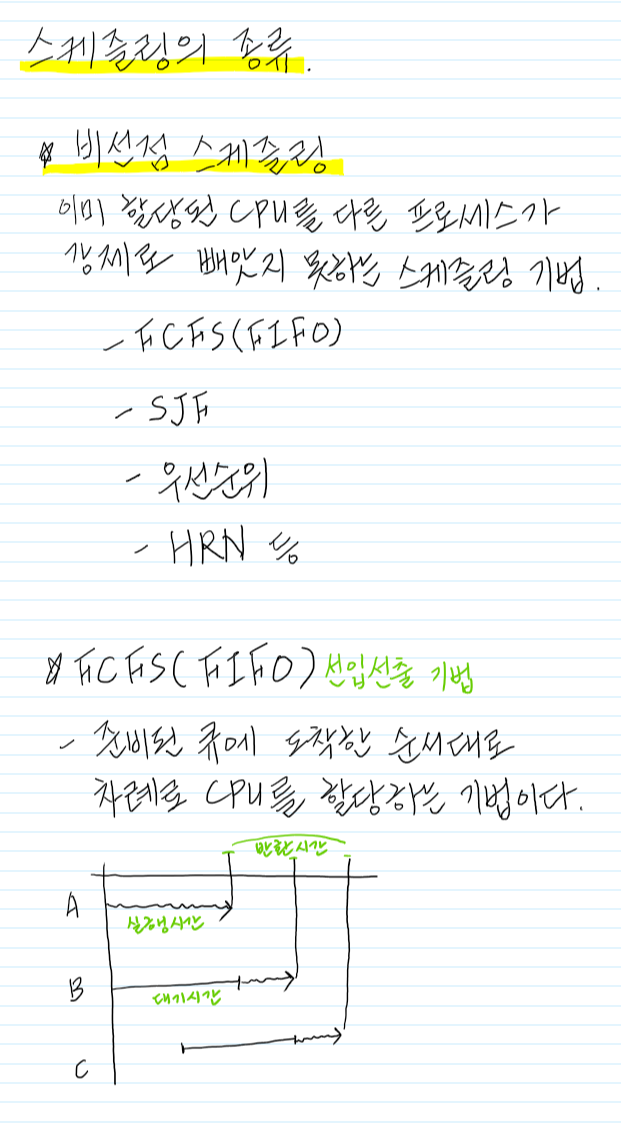 스케줄링의 종류.
* 비선점 스케줄링
이미 할당된 CPU를 다른 프로세스가
강제로 빼앗지 못하는 스케줄링 기법.
- FCFS(FIFO)
- SJF
- 우선순위
- HRN 등
* FCFS(FIFO) 선입선출 기법
- 준비된 큐에 도착한 순서대로
차례로 CPU를 할당하는 기법이다.
반환시간
A
실행시간
B
대기시간
C